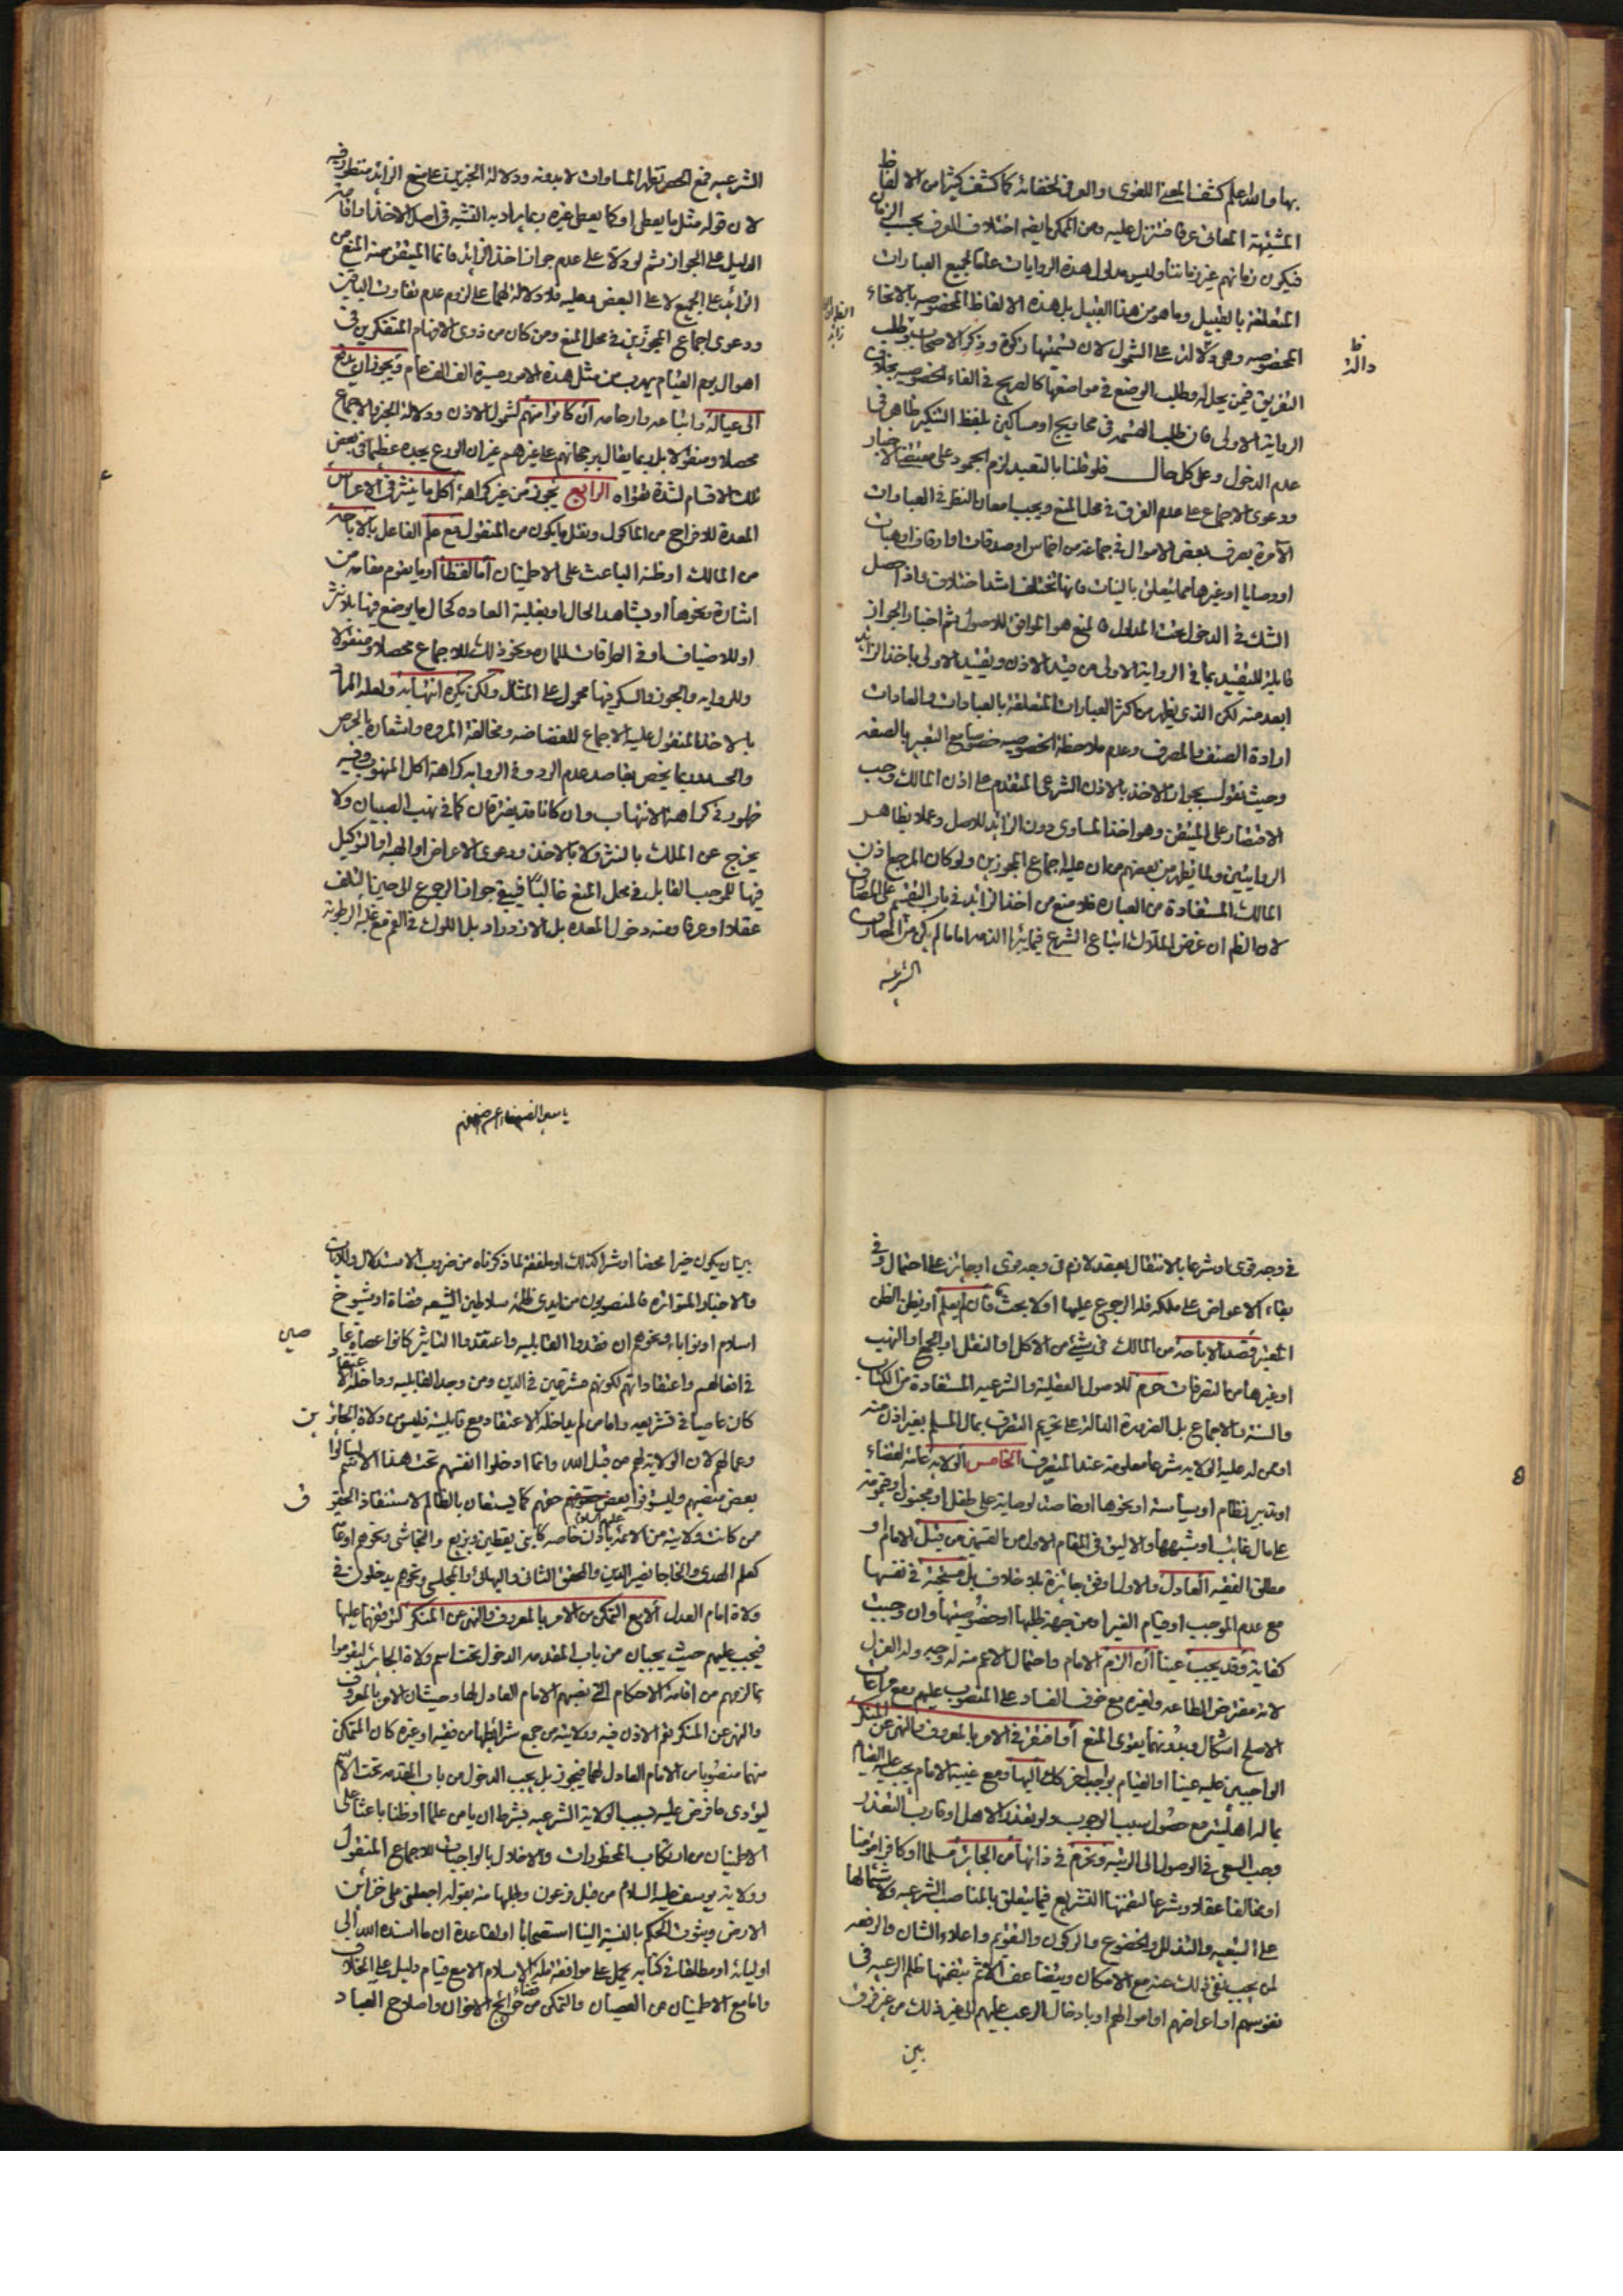 بها والله اعلم كشف المعنى اللغوى والعرفى لخفائه كما كشف كثيرا من الالفاظ
المشتبهة المعانى عرفا فتنزل عليه ومن الممكن اختلاف العرف بحسب الزمان
فيكون زمانهم غير زماننا وليس مدلول هذه الروايات عاما لجميع العبارات
المتعلقة بالقبيل وما هو من هذا القبيل بل هذه الالفاظ المخصوصه بالانحاء
المخصوصه وهى دلالته على الشمول لان قسمتها زكوة وذكر الاصحاب وطلب
التفريق فيمن يحل له وطلب الوضع فى مواضعها كالصريح فى الغاء الخصوصيه بخلاف
الرواية الاولى فان طلب القسمه فى محاويج او مساكين بلفظ التنكير ظاهر فى
عدم الدخول وعلى كل حال فلو قلنا بالتعبد لزم الجمود على مقتضى الاخبار
ودعوى الاجماع على عدم الفرق فى محل المنع ويجب امعان النظر فى العبارات
الآمرة بصرف بعض الاموال فى جماعة من اخماس او صدقات او اوقاف او هبات
او وصايا او غيرها مما يتعلق بالنيات فانها تختلف اشد اختلاف واذا حصل
الشك فى الدخول تحت المدلول فالمنع هو الموافق للاصول ثم اخبار الجواز
قابلة للتقييد بما فى الرواية الاولى من قيد الاذن وتقييد الاولى باخذ الزائد
ابعد منه لكن الذى يظهر من اكثر العبارات المتعلقة بالعبادات والعادات
ارادة الصنف والمصرف وعدم ملاحظة الخصوصيه خصوصا مع التعبير بالصفه
وحيث نقول بجواز الاخذ بالاذن الشرعى المتقدم على اذن المالك وجب
الاقتصار على المتيقن وهو اخذ المساوى دون الزائد للاصل وعملا بظاهر
الروايتين ولما يظهر من بعضهم من ان عليه اجماع المجوزين ولو كان المرجع اذن
المالك المستفادة من العباره فلا منع من اخذ الزائد فى باب التقسيم على المصارف
لان الظم ان غرض الملاك اتباع الشرع فيما يئرا الذمه اما ما لم يكن من المصارف
الشرعيه
دالة
الشرعيه فمع الحصر تظهر المساوات لا بدونه ودلالة الخبرين على منع الزائد منظور فيه
لان قوله مثل ما يعطى او كما يعطى غيره ربما يراد به التشبيه فى اصل الاخذ او اقامة
الدليل على الجواز ثم لو دلا على عدم جواز اخذ الزائد فانما المتيقن منه المنع من
الزائد على الجميع لا على البعض وعليه فلا دلالة لهما على لزوم عدم تفاوت الباقين
ودعوى اجماع المجوزين فى محل المنع ومن كان من ذوى الافهام المتفكرين فى
اهوال يوم القيام يهرب من مثل هذه الامور مسيرة الف الف عام ويجوز ان يدفع
الى عياله واتباعه وارحامه ان كانوا منهم لشمول الاذن ودلالة الخبر والاجماع
محصلا ومنقولا بل ربما يقال برجحانهم على غيرهم غير ان الورع يجده عظيما فى بعض
تلك الاقسام لشدة تقواه الرابع يجوز من غير كراهة اكل ما ينثر فى الاعراس
المعدة للافراح من الماكول ونقل ما يكون من المنقول مع علم الفاعل بالاباحة
من المالك او ظنه الباعث على الاطمينان اما لفظا او ما يقوم مقامه من
اشارة ونحوها او بشاهد الحال او بغلبة العاده كحال ما يوضع فيها بلا نثر
او للاضياف او فى الطرقات للمارة ونحو ذلك للاجماع محصلا ومنقولا
وللروايه والجوز والسكر فيها محمول على المثال ولكن يكره انتهابه ولعله المراد
بالاخذ المنقول عليه الاجماع للغضاضه ومخالفة المروه واشعاره بالحرص
والحسد وربما يخص بقاصد عدم الرد وفى الروايه كراهة اكل المنهوب وفيه
ظهور فى كراهة الانتهاب وان كانا قد يفترقان كما فى نهب الصبيان ولا
يخرج عن الملك بالنثر ولا بالاخذ ودعوى الاعراض او الهبه او التوكيل
فيها للموجب القابل فى محل المنع غالبا فيبقى جواز الرجوع الى حين التلف
عقلا او عرفا ومنه دخول المعده بل الازدراد بل اللوك فى الفم مع غلبة الرطوبة
فى وجه قوى او شرعا بالانتقال بعقد لازم فى وجه قوى او جائز على احتمال وفى
بقاء الاعواض على ملكه فله الرجوع عليها او لا بحث فان لم يعلم او يظن الظن
المعتبر قصد الاباحة من المالك فى شئ من الاكل او النقل او الجمع او النهب
او غيرها من التصرفات حرم للاصول العقلية والشرعيه المستفادة من الكتاب
والسنة والاجماع بل الضرورة الدالة على تحريم التصرف بمال المسلم بغير اذن منه
او من له عليه الولايه شرعا معلومة عند المتصرف الخامس الولايه عامة لقضاء
او تدبير نظام او سياسة او نحوها او خاصة لوصاية على طفل او مجنون او قيمومة
على مال غائب او شبهها والاليق فى المقام الاول من القسمين من قبل الامام او
مطلق الفقيه العادل والاول اوفق جائزة بلا خلاف بل مستحبة فى نفسها
مع عدم الموجب او قيام الغير او من جهة طلبها او خصوصيتها وان وجبت
كفاية وقد يجب عينا ان الزم الامام واحتمال الاعم منه له وجه وله العزل
لانه مفترض الطاعه ولغيره مع خوف الفساد على المنصوب عليهم ومع مراعات
الاصلح اشكال وبدونهما يقوى المنع او افتقر فى الامر بالمعروف والنهى عن المنكر
الواجبين عليه عينا او القيام بواجب اخر كك اليها ومع غيبة الامام يجب عليه القيام
بما له اهلية مع حصول سبب الوجوب ولو تعذر الاهل او قارب التعذر
وجب السعى فى الوصول الى الرتبه وتحرم فى ذاتها من الجائر مسلما او كافرا مؤمنا
او مخالفا عقلا وشرعا لتضمنها التشريع فيما يتعلق بالمناصب الشرعيه ولاشتمالها
على التبعيه والتذلل والخضوع والركون والتقويم واعلاء الشان والرفعه
لمن يجب نفى ذلك عنه مع الامكان ويتضاعف الاثم بتضمنها ظلم الرعيه فى
نفوسهم او اعراضهم او اموالهم او بادخال الرعب عليهم الى غير ذلك من غير فرق
بين
بين ان يكون خيرا محضا او شرا كذلك او ملفقة لما ذكرناه من ضروب الاستدلال وللايات
والاخبار المتواتره فالمنصوبون من ايدى ظلمة سلاطين الشيعه قضاة او شيوخ
اسلام او نوابا ونحوهم ان فقدوا القابليه واعتقدوا التاثير كانوا عصاة
فى افعالهم واعتقاداتهم لكونهم مشرعين فى الدين ومن وجد القابليه وداخله الاعتقاد
كان عاصيا فى تشريعه واما من لم يداخله الاعتقاد مع قابلية فليس من ولاة الجائر
وعمالهم لان الولاية لهم من قبل الله وانما ادخلوا انفسهم تحت هذا الاسم لينالوا
بعض منصبهم وليستوفوا بعض حقهم كما يستعان بالظالم لاستنقاذ الحقوق
من كانت ولايته من الائمة عليهم السلام باذن خاصه كابنى يقطين وبزيع والنجاشى ونحوهم او عامة
كعلم الهدى والخاجا نصير الدين والمحقق الثانى والبهائى والمجلسى ونحوهم يدخلون فى
ولاة امام العدل الرابع التمكن من الامر بالمعروف والنهى عن المنكر لتوقفهما عليها
فيجب عليهم حيث يجبان من باب المقدمه الدخول تحت اسم ولاة الجائر ليقوموا
بما لزمهم من اقامة الاحكام التى نصبهم الامام العادل لها وحيث ان الامر بالمعروف
والنهى عن المنكر يعم الاذن فيه وولايته من جمع شرائطها من فقيه او غيره كان المتمكن
منهما منصوبا من الامام العادل لهما فيجوز بل يجب الدخول من باب المقدمه تحت الاسم
ليؤدى ما فرض عليه بسبب الولاية الشرعيه بشرط ان يامن علما او ظنا باعثا على
الاطمينان من ارتكاب المحظورات والاخلال بالواجبات للاجماع المنقول
وولاية يوسف عليه السلام من قبل فرعون وطلبها منه بقوله اجعلنى على خزائن
الارض وثبوت الحكم بالنسبة الينا استصحابا او لقاعدة ان ما اسنده الله الى
اوليائه او مطلقا فى كتابه يحمل على موافقة ملة الاسلام الا مع قيام دليل على الخلاف
واما مع الاطمينان من العصيان والتمكن من قضاء حوائج الاخوان واصلاح العباد